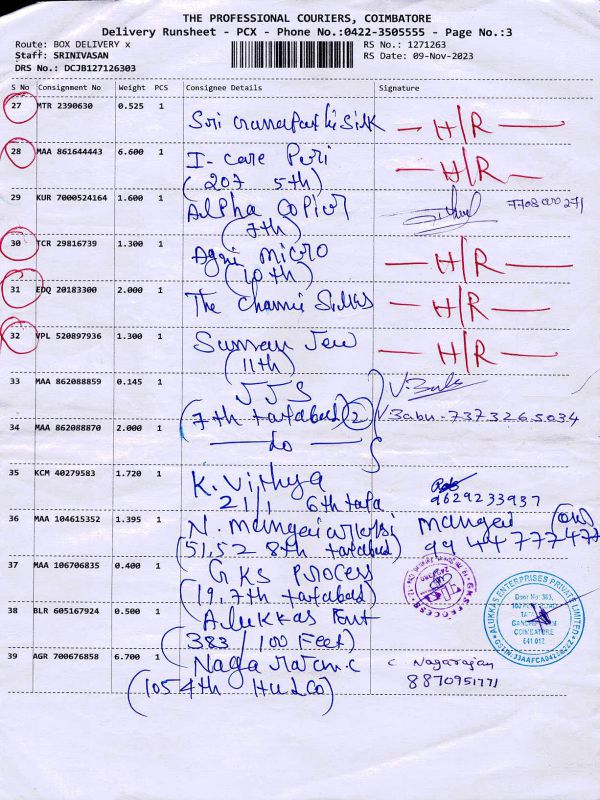 THE PROFESSIONAL COURIERS, COIMBATORE
Delivery Runsheet - PCX - Phone No.:0422-3505555 - Page No.:3
Route: BOX DELIVERY x
RS No.: 1271263
Staff: SRINIVASAN
RS Date: 09-Nov-2023
DRS No.: DCJB127126303
S No Consignment No Weight PCS Consignee Details Signature
27 MTR 2390630 0.525 1 Sri Silk H/R
28 MAA 861644443 6.600 1 I-care Peri H/R
(207 5th)
29 KUR 7000524164 1.600 1 Alpha Copier
(7th)
30 TCR 29816739 1.300 1 Agni Micro H/R
(10th)
31 EDQ 20183300 2.000 1 The Silks H/R
32 VPL 520897936 1.300 1 Suman Jew H/R
(11th)
33 MAA 862088859 0.145 1 JJS V.Babu
(7th tatabad) 2 V.Babu-7373265034
34 MAA 862088870 2.000 1 do
35 KCM 40279583 1.720 1 K. Vithya
211, 6th tata 9629233937
36 MAA 104615352 1.395 1 N. Mangai Mangai
(51,52 8th tatabad)
37 MAA 106706835 0.400 1 GKS Process
(19, 7th tatabad)
38 BLR 605167924 0.500 1 Alukkas Ent
(383/100 Feet)
ALUKKAS ENTERPRISES PRIVATE LIMITED
Door No: 383,
COIMBATORE
641 012
39 AGR 700676858 6.700 1 Nagaratan.c C Nagarajan
(105 4th HUDCO) 8870951771